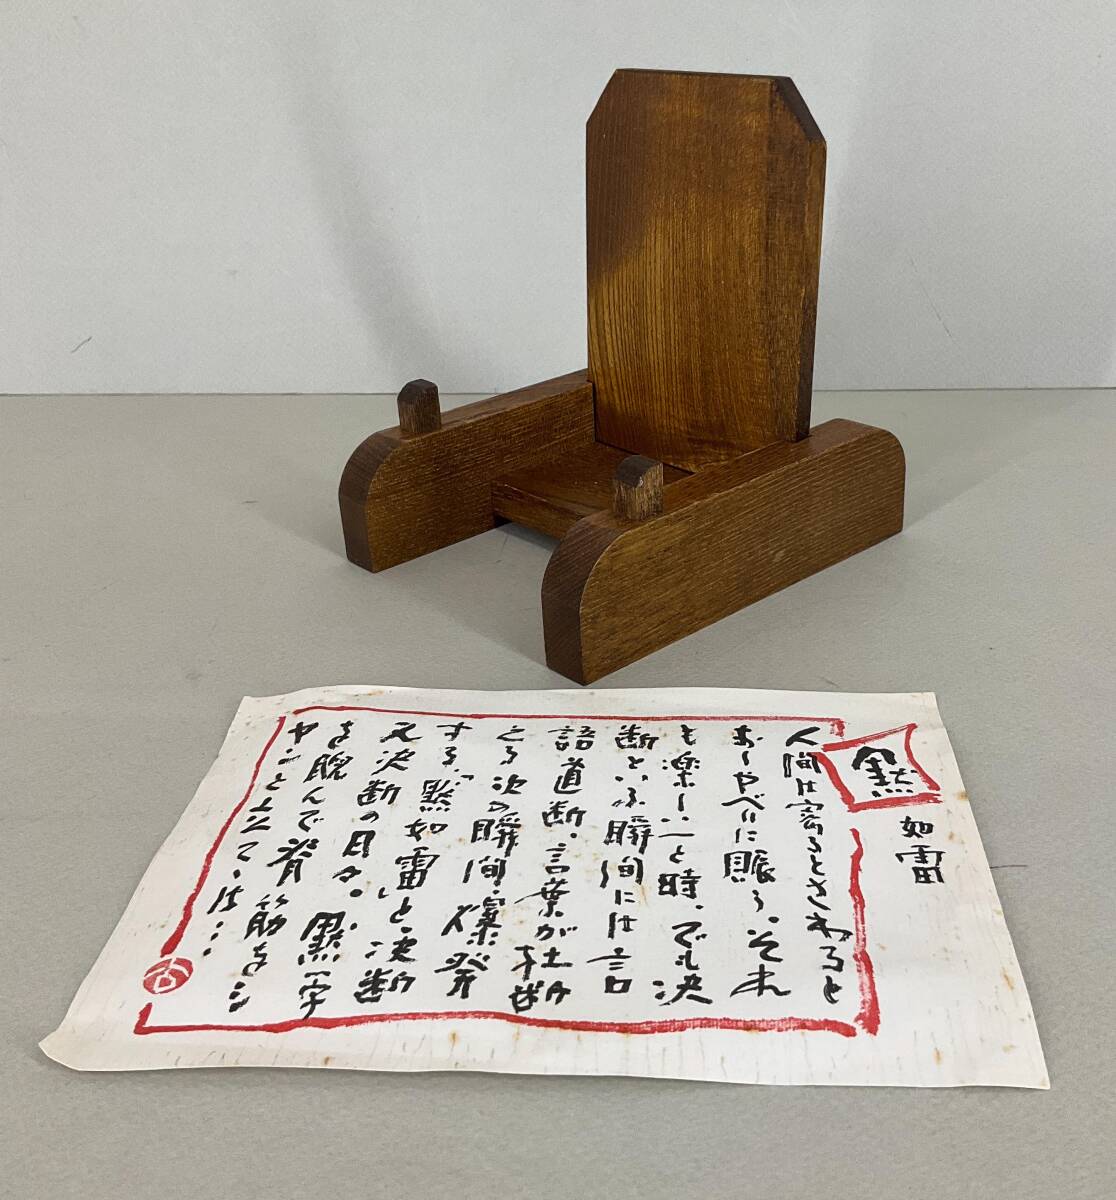 黙
如雷
人間は寄るとさわると
おしゃべりに賑う。それ
も楽しい一と時。でも決
断という瞬間には言
語道断。言葉が杜絶
える次の瞬間、爆発
する「黙如雷」と、決断
又決断の日々。黙字
を睨んで背筋をシ
ヤンと立てては…